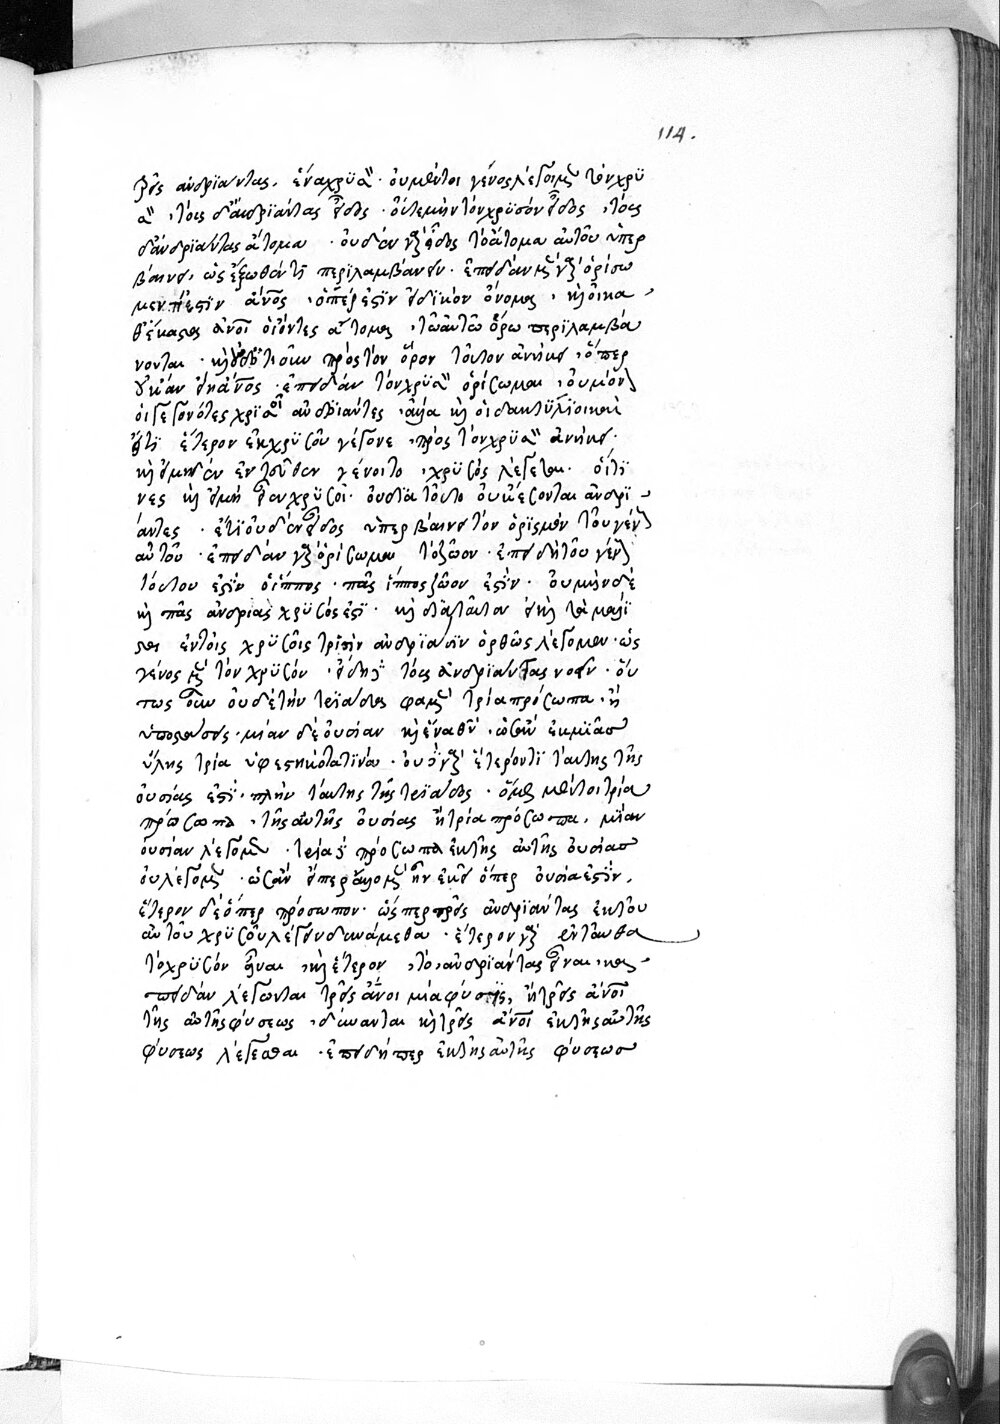 114.
τρεῖς ἀνδριάντας, ἕνα χρυσὸν. οὐ μέντοι γένος λέγομεν τὸν χρυ
σὸν, τοὺς δ' ἀνδριάντας εἶδος. οὔτε μὴν τὸν χρυσὸν εἶδος, τοὺς
δ' ἀνδριάντας ἄτομα. οὐδὲν γὰρ εἶδος τὰ ἄτομα αὐτοῦ ὑπερ
βαίνει, ὡς ἔξωθέν τι περιλαμβάνειν. ἐπειδὰν μὲν γὰρ ὁρίσω
μεν τί ἐστιν ἄνθρωπος, ὅπερ ἐστὶν εἰδικὸν ὄνομα, καὶ οἱ κα
θέκαστα ἄνθρωποι οἱ ὄντες ἄτομοι, τῷ αὐτῷ ὅρῳ περιλαμβά
νονται. πρὸς τὸν ὅρον τοῦτον ἀνήκει, ὅπερ
οὐκ ἂν εἴη ἄνθρωπος. ἐπειδὰν τὸν χρυσὸν ὁρίζωμαι, οὐ μόνον
οἱ γεγονότες χρυσοῖ ἀνδριάντες, ἀλλὰ καὶ οἱ δακτύλιοι καὶ
εἴ τι ἕτερον ἐκ χρυσοῦ γέγονε, πρὸς τὸν χρυσὸν ἀνήκει.
καὶ εἰ μηδὲν ἐντεῦθεν γένοιτο, χρυσὸς λέγεται. οἵτι
νες καὶ εἰ μὴ εἶεν χρυσοῖ. οὐ διὰ τοῦτο οὐκ ἔσονται ἀνδρι
άντες. ἔτι οὐδὲν εἶδος ὑπερβαίνει τὸν ὁρισμὸν τοῦ γένους
αὐτοῦ. ἐπειδὰν γὰρ ὁρίζωμαι τὸ ζῶον. ἐπειδὴ τοῦ γένους
τούτου ἐστὶν ὁ ἵππος. πᾶς ἵππος ζῶον ἐστίν. οὐ μὴν δὲ
καὶ πᾶς ἀνδριὰς χρυσός ἐστι. καὶ διὰ ταῦτα
ἐν τοῖς χρυσοῖς τρισὶν ἀνδριᾶσιν ὀρθῶς λέγομεν. ὡς
γένος μὲν τὸν χρυσόν. εἴδη δὲ τοὺς ἀνδριάντας νοεῖν. οὕ
τως οὖν οὐδὲ τὴν τριάδα φαμὲν τρία πρόσωπα. ἢ
ὑποστάσεις. μίαν δὲ οὐσίαν καὶ ἕνα θεόν. ὡσὰν ἐκ μιᾶς
ὕλης τρία ὑφεστηκότα τινά. οὐ γὰρ ἕτερόν τι ταύτης τῆς
οὐσίας ἐστὶ. πλὴν ταύτης τῆς τριάδος. ὅμως μέντοι τρία
πρόσωπα, τῆς αὐτῆς οὐσίας ἢ τρία πρόσωπα, μίαν
οὐσίαν λέγομεν. τρία δὲ πρόσωπα ἐκ τῆς αὐτῆς οὐσίας
οὐ λέγομεν. ὡσὰν ὅπερ οὐσία ἐστὶν,
ἕτερον δὲ ὅπερ πρόσωπον. ὥσπερ τρεῖς ἀνδριάντας ἐκ τοῦ
αὐτοῦ χρυσοῦ λέγειν δυνάμεθα. ἕτερον γὰρ ἐνταῦθα
τὸ χρυσὸν εἶναι, καὶ ἕτερον, τὸ ἀνδριάντας εἶναι, καὶ
ἐπειδὰν λέγωνται τρεῖς ἄνθρωποι μία φύσις, ἢ τρεῖς ἄνθρωποι
τῆς αὐτῆς φύσεως, δύνανται καὶ τρεῖς ἄνθρωποι ἐκ τῆς αὐτῆς
φύσεως λέγεσθαι. ἐπειδήπερ ἐκ τῆς αὐτῆς φύσεως